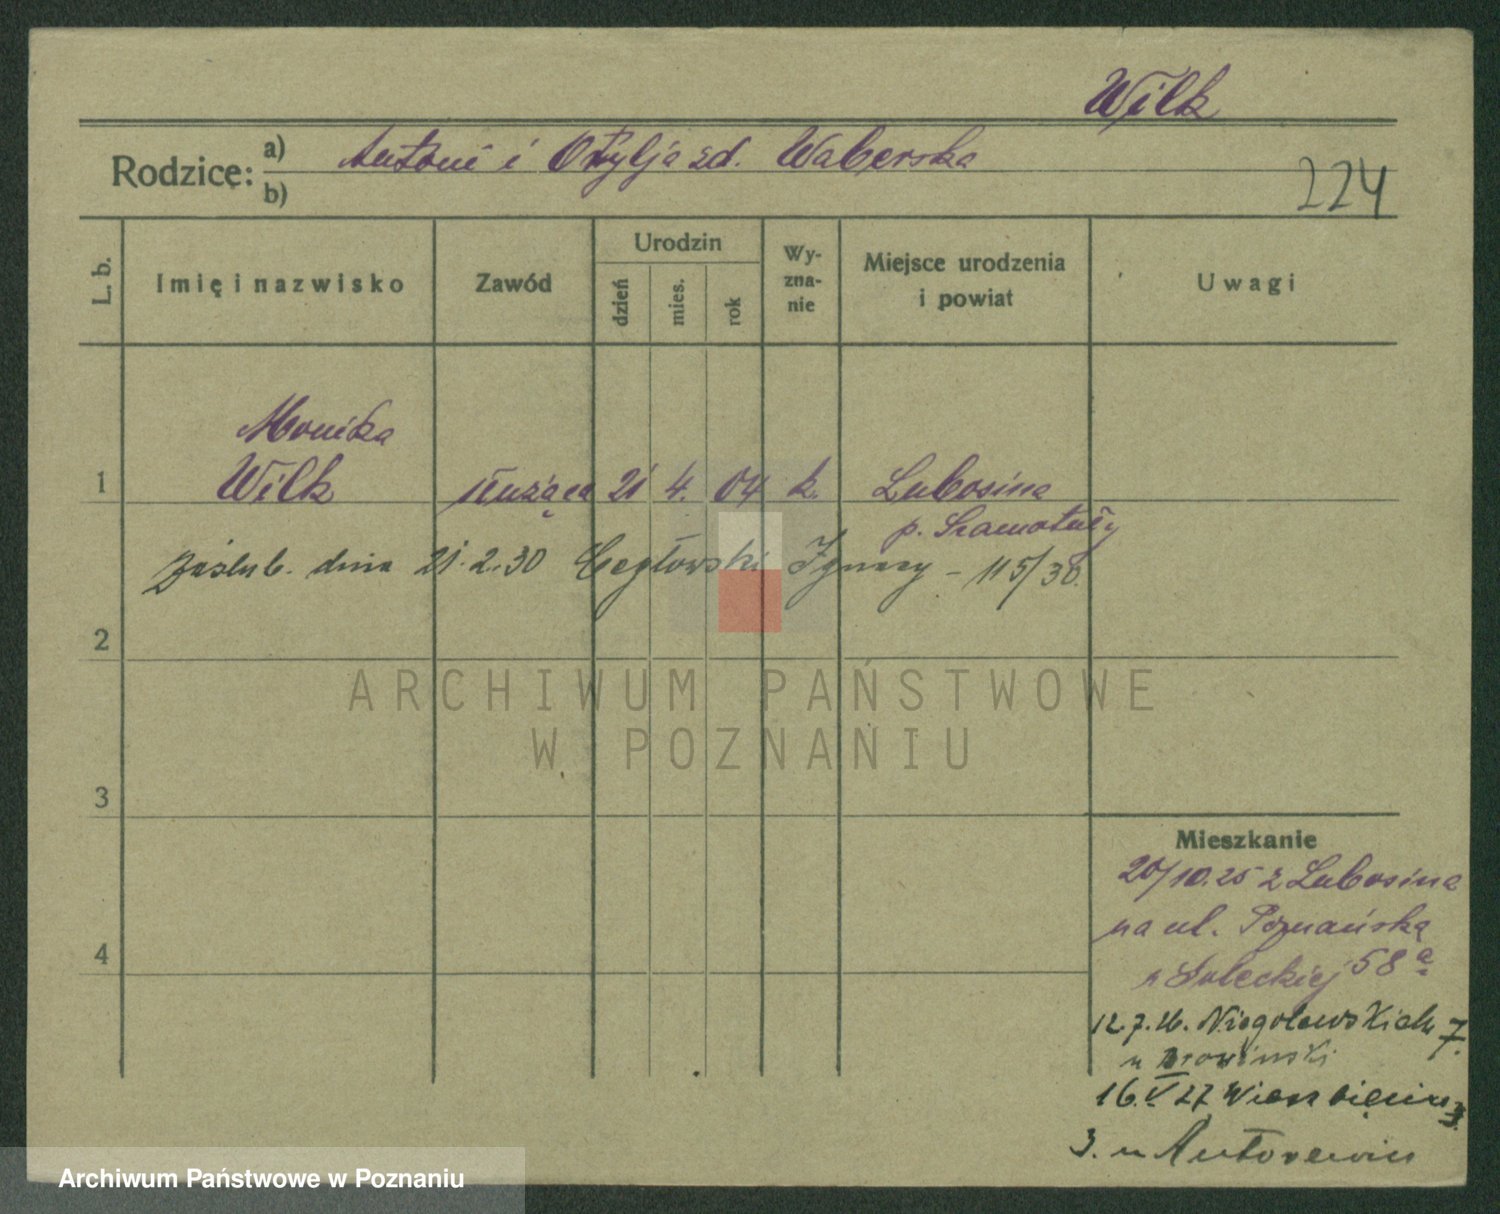 Wilk
Rodzice: a) Antoni i Otylja zd. Waberska
b)
224
L. b.
Imię i nazwisko
Zawód
Urodzin
dzień
mies.
rok
Wy-
zna-
nie
Miejsce urodzenia
i powiat
Uwagi
Monika
1 Wilk służąca 21 4. 04 k. Lubosina
p. Szamotuły
Zaślub. dnia 21.2.30 Cegłowski Ignacy - 115/30.
2
ARCHIWUM PAŃSTWOWE
W POZNANIU
3
4
Mieszkanie
20/10.25 z Lubosina
na ul. Poznańską
58a
12.7.26. Niegolewskich 7.
u
16.V 27
3. u
Archiwum Państwowe w Poznaniu